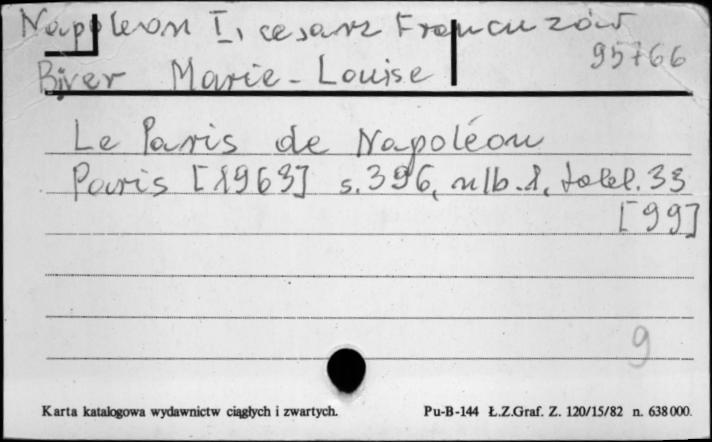 Napoleon I, cesarz Francuzów
95766
Biver Marie-Louise
Le Paris de Napoléon
Paris [1963] s. 396, nlb. 1, tabl. 33
[99]
9
Karta katalogowa wydawnictw ciągłych i zwartych.
Pu-B-144 Ł.Z.Graf. Z. 120/15/82 n. 638000.